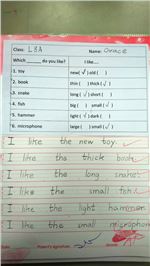 Class: L8A Name: Grace
Which ______ do you like? I like....
1. toy new( √ ) old ( )
2. book thin ( ) thick ( √ )
3. snake long ( √ ) short ( )
4. fish big ( ) small ( √ )
5. hammer light ( √ ) dark ( )
6. microphone large ( ) small ( √ )
I like the new toy.
I like the thick book.
I like the long snake.
I like the small fish.
I like the light hammer.
I like the small microphone
Parent's signature: